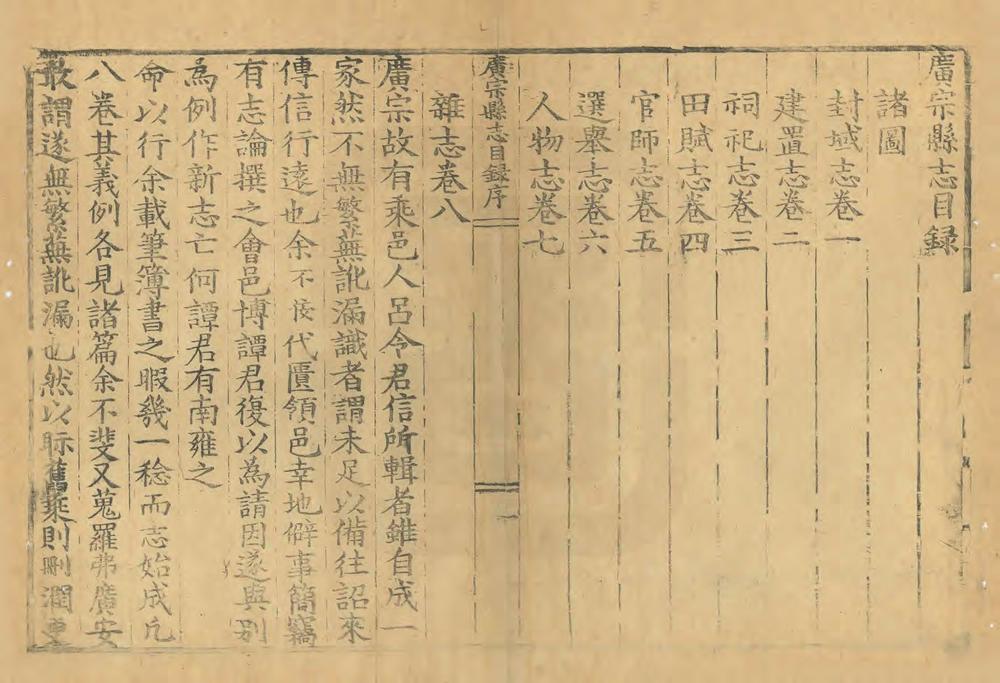 廣宗縣志目録
諸圖
封域志卷一
建置志卷二
祠祀志卷三
田賦志卷四
官師志卷五
選舉志卷六
人物志卷七
廣宗縣志目録序
一
雜志卷八
廣宗故有乘邑人呂令君信所輯者雖自成一
家然不無繁蕪訛漏識者謂未足以備往詔來
傳信行遠也余不佞代匱領邑幸地僻事簡竊
有志論撰之會邑博譚君復以為請因遂與别
為例作新志亡何譚君有南雍之
命以行余載筆簿書之暇幾一稔而志始成凡
八卷其義例各見諸篇余不斐又蒐羅弗廣安
敢謂遂無繁蕪訛漏也然以眎舊乘則刪潤